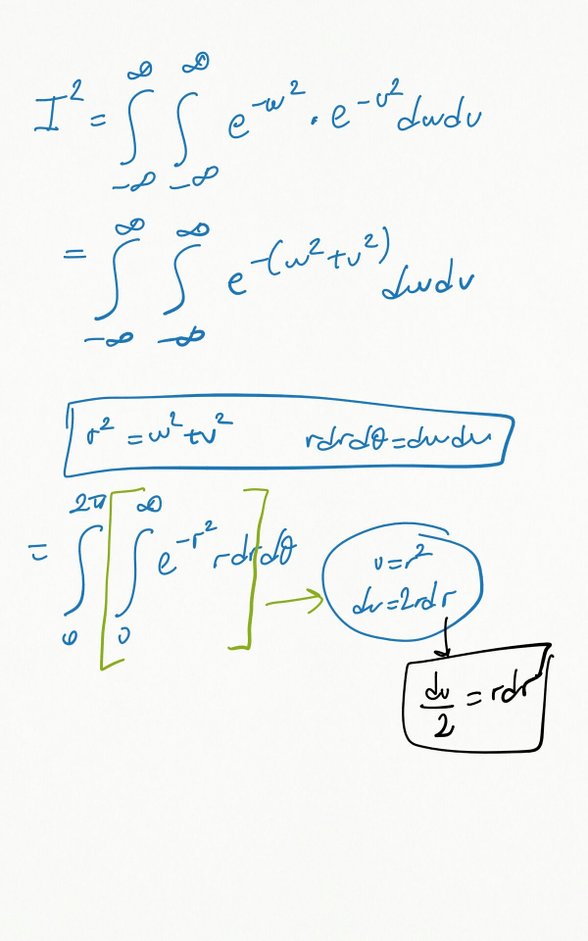 I² = ∫_{-∞}^{∞} ∫_{-∞}^{∞} e^{-w²} · e^{-v²} dw dv
= ∫_{-∞}^{∞} ∫_{-∞}^{∞} e^{-(w²+v²)} dw dv
r² = w²+v² rdrdθ = dw dv
= ∫_{0}^{2π} [ ∫_{0}^{∞} e^{-r²} rdr ] dθ →
u = r²
du = 2rdr
du/2 = rdr